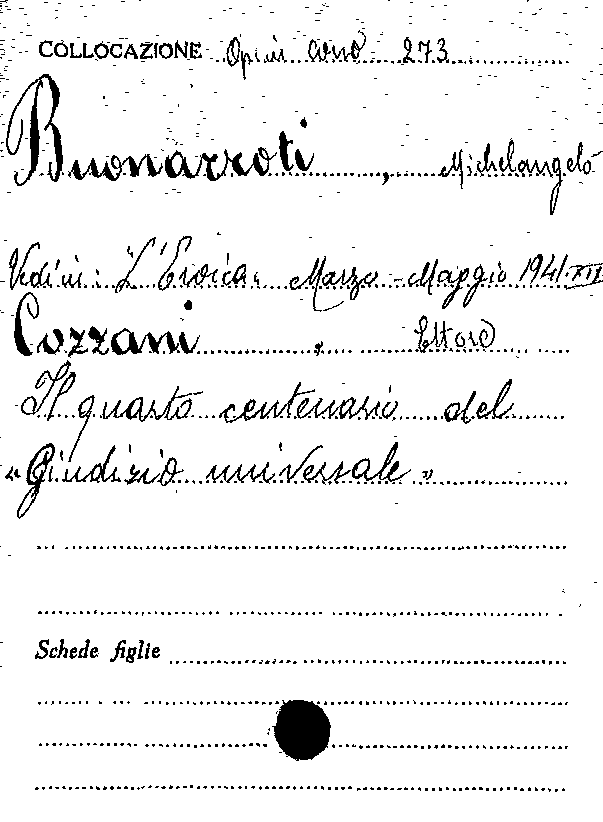 COLLOCAZIONE 273
Buonarroti, Michelangelo
Vedi in: "L'Eroica" Marzo-Maggio 1941-XIX
Cozzani, Ettore
Il quarto centenario del
"Giudizio universale"
Schede figlie